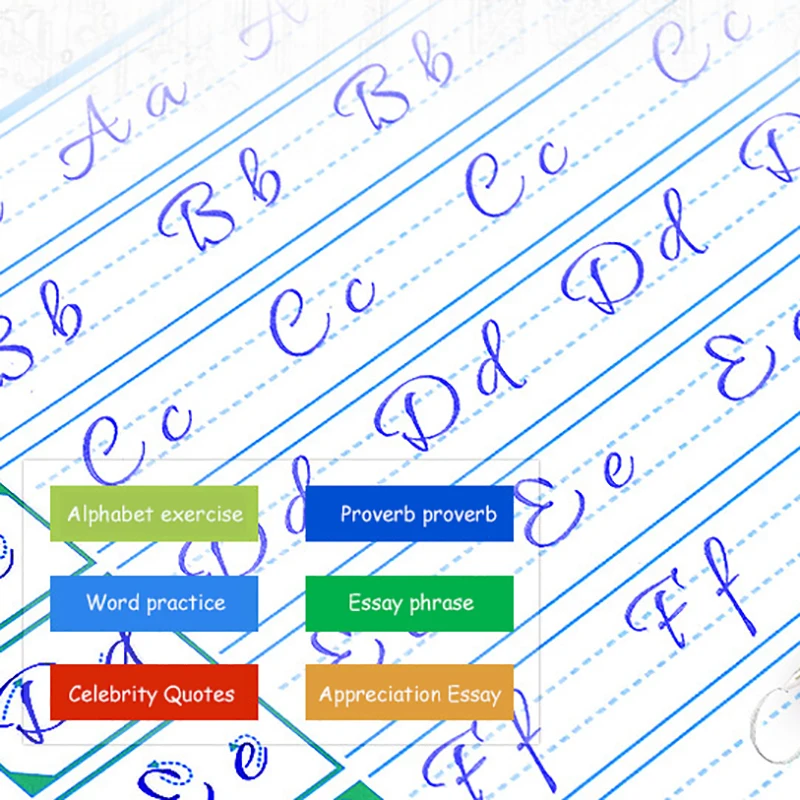 A a A
B b B b B b
C c C c C c
D d D d D d D
E e E e E
F f F f
Alphabet exercise
Proverb proverb
Word practice
Essay phrase
Celebrity Quotes
Appreciation Essay